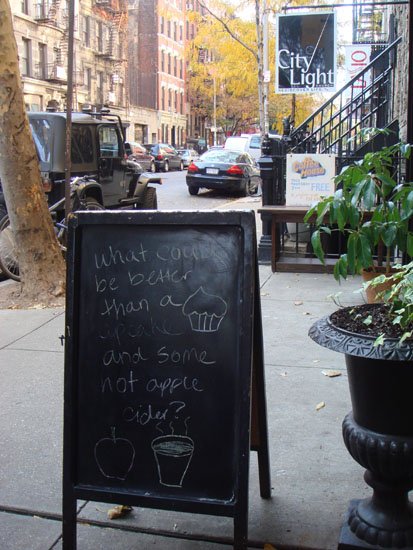 City
Light
FREE
what could
be better
than a
cupcake
and some
hot apple
cider?